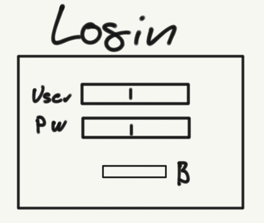 Login
User
PW
B